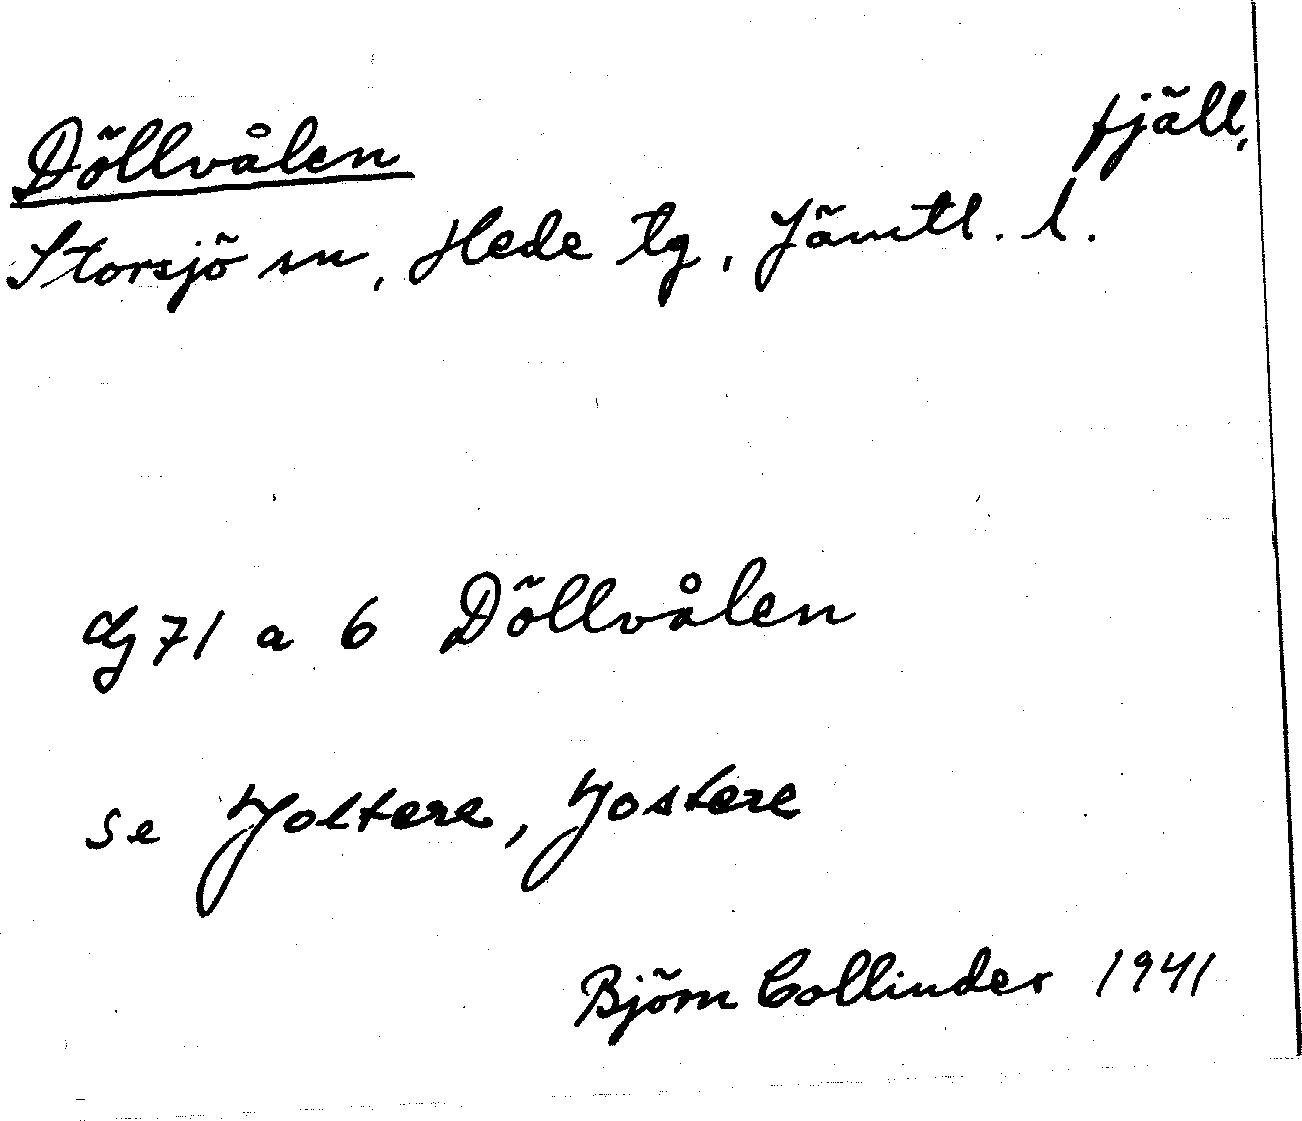 Döllvålen fjäll,
Storsjö sn, Hede tg, Jämtl. l.
dg 71 a 6 Döllvålen
se Joltere, Jostere
Björn Collinder 1941